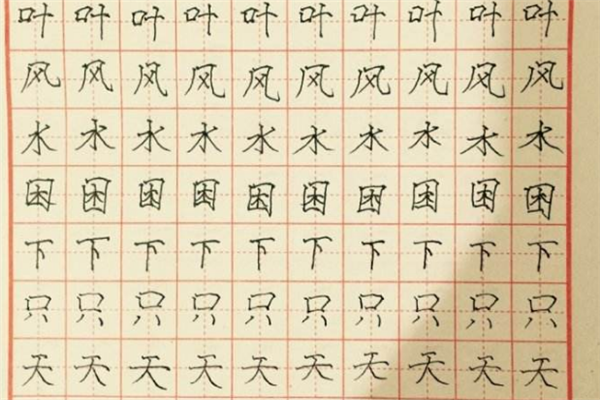 叶叶叶叶叶叶叶叶叶叶
风风风风风风风风风风
水水水水水水水水水水
困困困困困困困困困困
下下下下下下下下下下
只只只只只只只只只只
天天天天天天天天天天